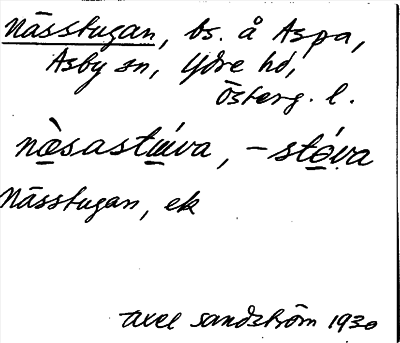 Nässtugan, bs. å Aspa,
Asby sn, Ydre hd,
Österg. l.
nœ̀sastœ́va, -stǿva
Nässtugan, ek
Axel Sandström 1930